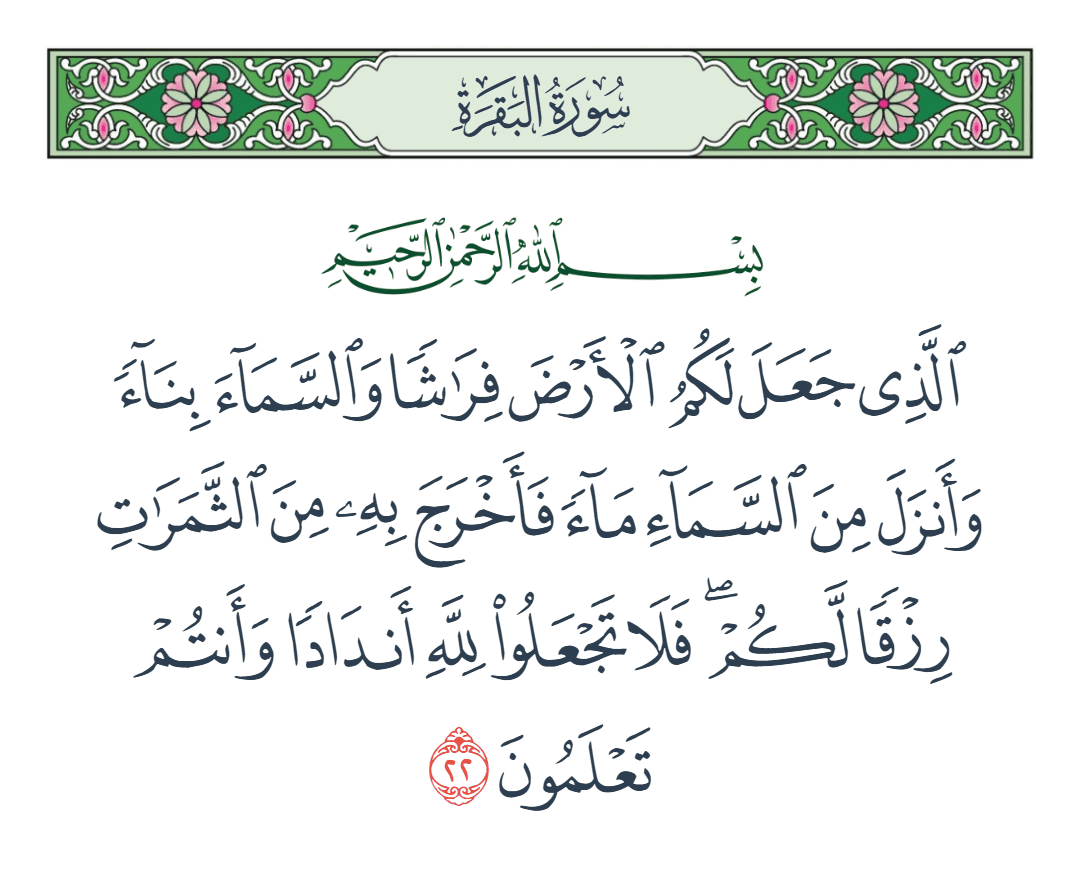 سُورَةُ البَقَرَةِ
بِسْمِ ٱللَّهِ ٱلرَّحْمَٰنِ ٱلرَّحِيمِ
ٱلَّذِى جَعَلَ لَكُمُ ٱلْأَرْضَ فِرَٰشًا وَٱلسَّمَآءَ بِنَآءً
وَأَنزَلَ مِنَ ٱلسَّمَآءِ مَآءً فَأَخْرَجَ بِهِۦ مِنَ ٱلثَّمَرَٰتِ
رِزْقًا لَّكُمْ ۖ فَلَا تَجْعَلُوا۟ لِلَّهِ أَندَادًا وَأَنتُمْ
تَعْلَمُونَ ٢٢